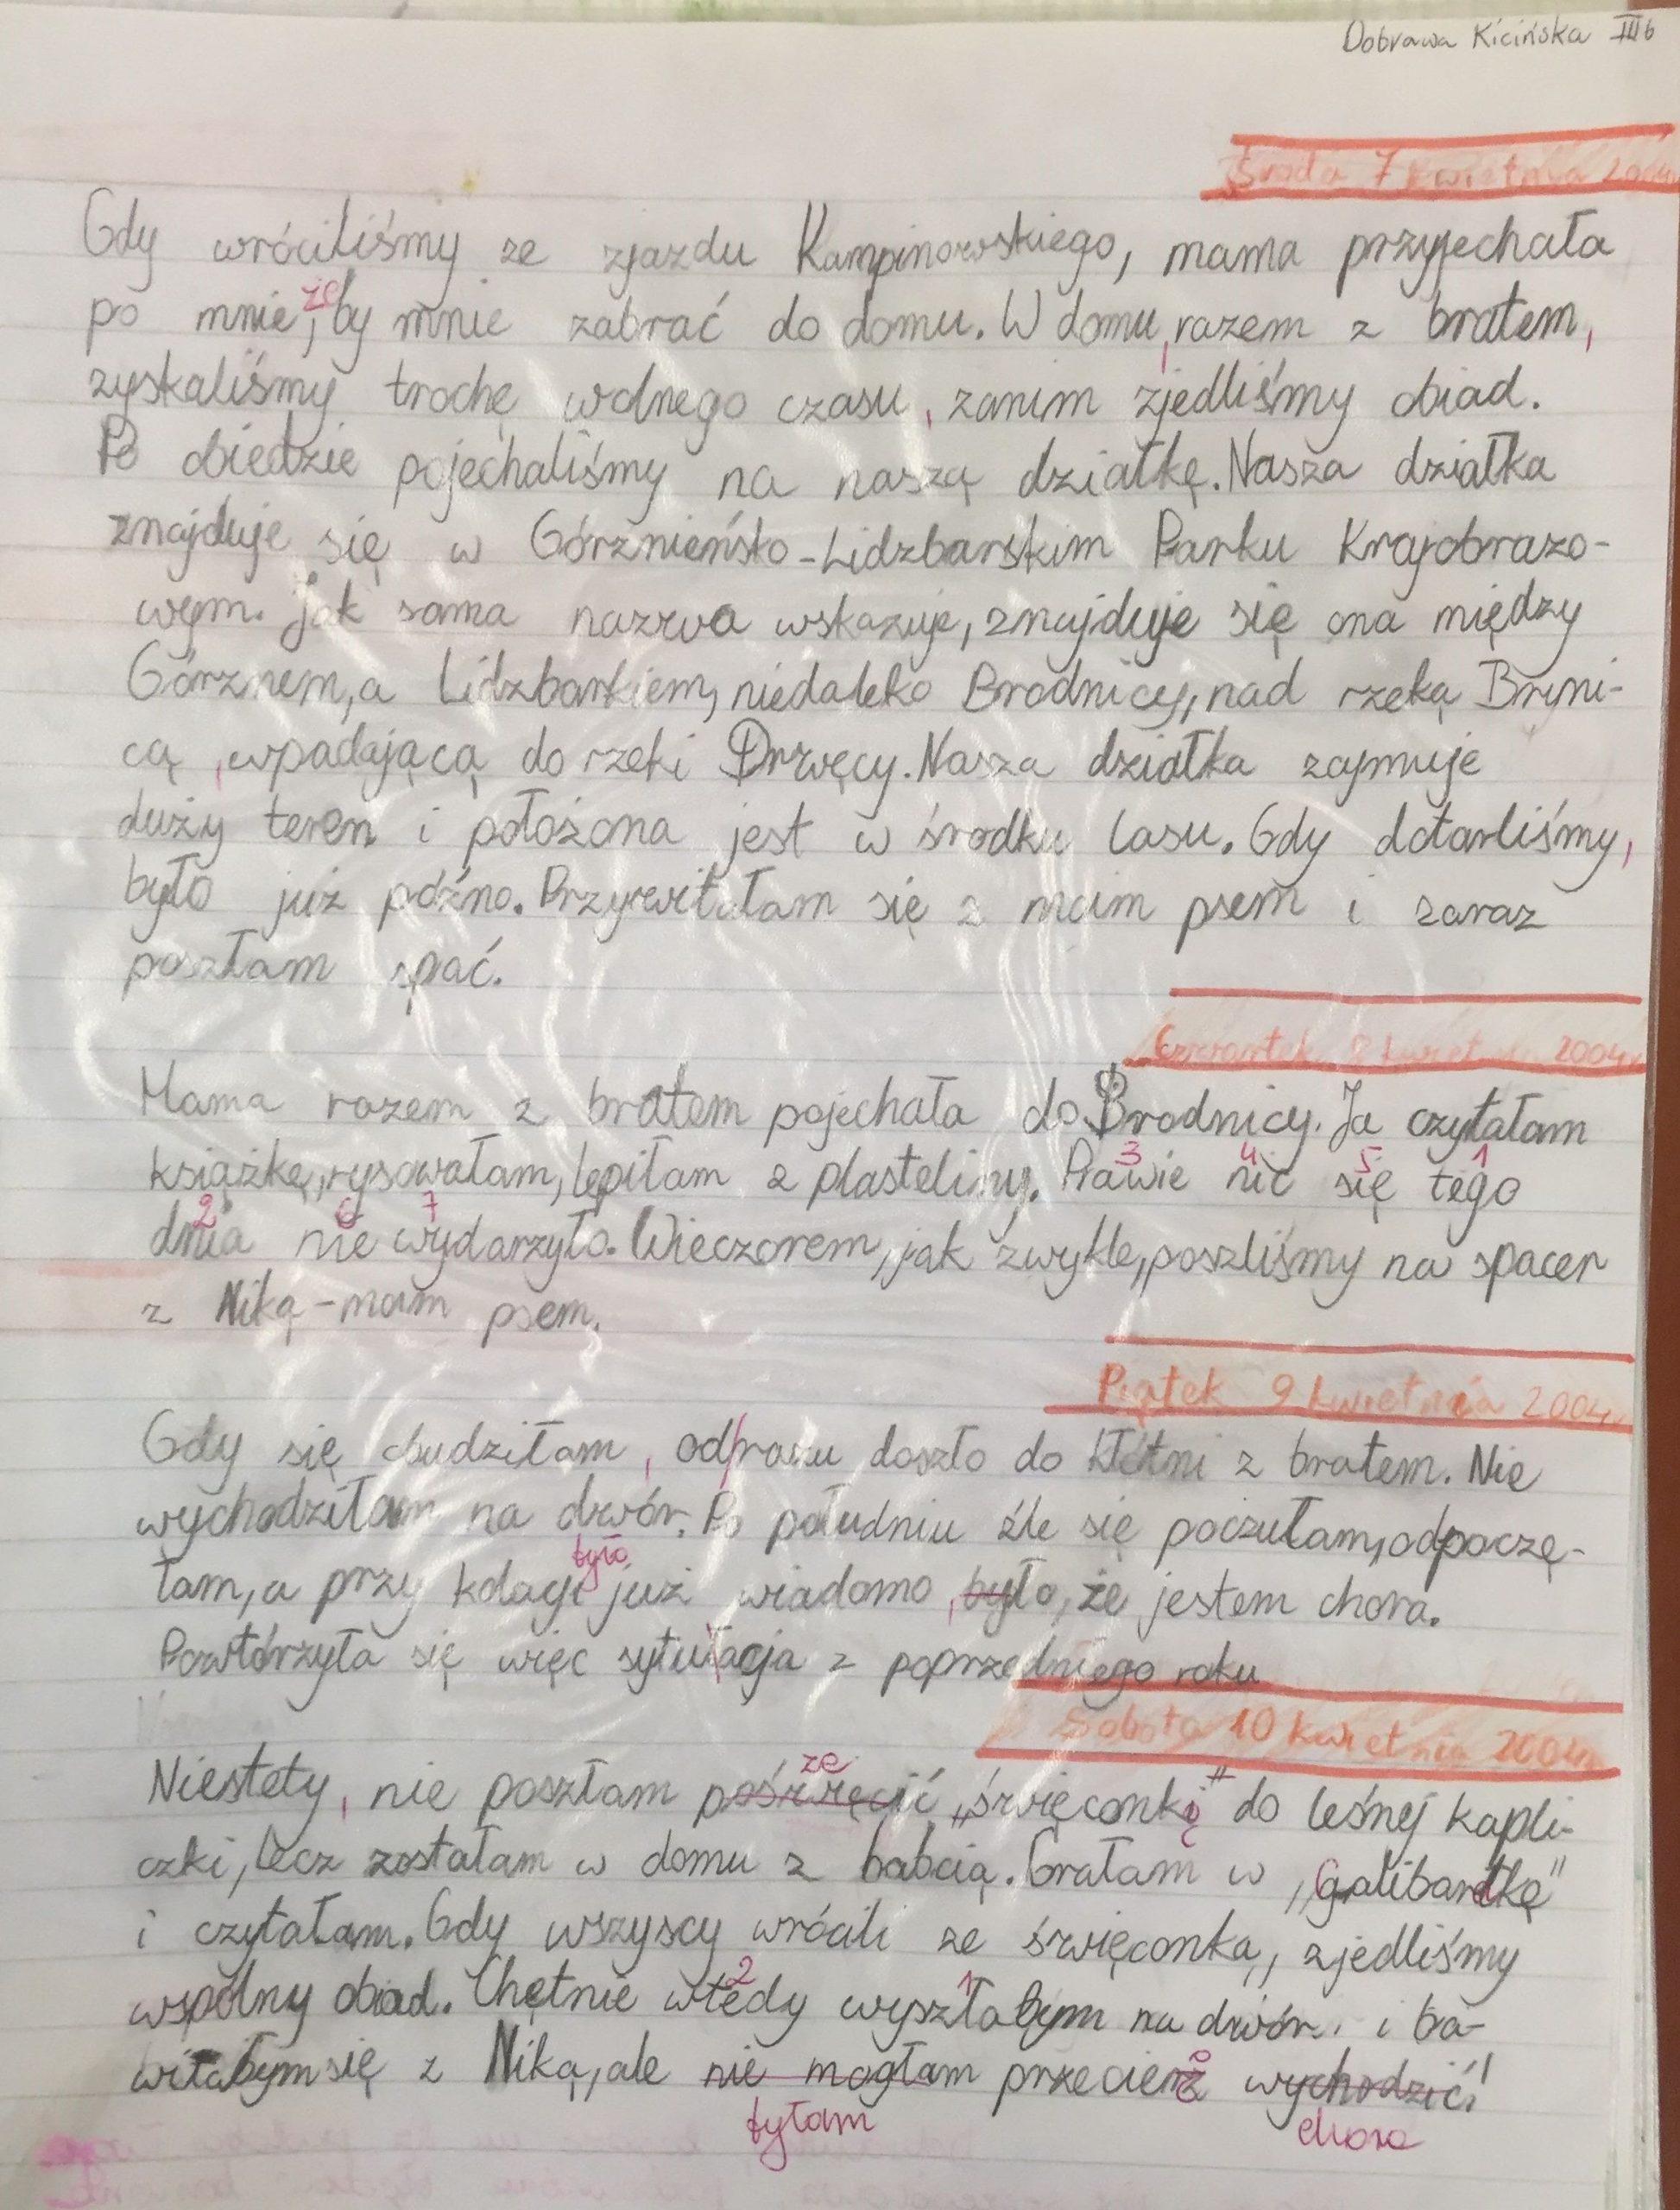 Dobrawa Kicińska III b
Środa 7 kwietnia 2004
Gdy wróciliśmy ze zjazdu Kampinowskiego, mama przyjechała
że
po mnie, by mnie zabrać do domu. W domu, razem z bratem,
zyskaliśmy trochę wolnego czasu, zanim zjedliśmy obiad.
Po obiedzie pojechaliśmy na naszą działkę. Nasza działka
znajduje się w Górznieńsko-Lidzbarskim Parku Krajobrazo-
wym. Jak sama nazwa wskazuje, znajduje się ona między
Górznem, a Lidzbarkiem, niedaleko Brodnicy, nad rzeką Bryni-
cą, wpadającą do rzeki Drwęcy. Nasza działka zajmuje
duży teren i położona jest w środku lasu. Gdy dotarliśmy,
było już późno. Przywitałam się z moim psem i zaraz
poszłam spać.
Czwartek 8 kwietnia 2004
Mama razem z bratem pojechała do Brodnicy. Ja czytałam
3 4 5 1
książkę, rysowałam, lepiłam z plasteliny. Prawie nic się tego
2 6 7
dnia nie wydarzyło. Wieczorem, jak zwykle, poszliśmy na spacer
z Niką - moim psem.
Piątek 9 kwietnia 2004
Gdy się obudziłam, od razu doszło do kłótni z bratem. Nie
wychodziłam na dwór. Po południu źle się poczułam, odpoczę-
było
łam, a przy kolacji już wiadomo, było, że jestem chora.
Powtórzyła się więc sytułacja z poprzedniego roku
Sobota 10 kwietnia 2004
ze
Niestety, nie poszłam poświęcić „święconki" do leśnej kapli-
czki, lecz zostałam w domu z babcią. Grałam w „Galibardkę"
i czytałam. Gdy wszyscy wrócili ze święconką, zjedliśmy
2 1
wspólny obiad. Chętnie wtedy wyszłabym na dwór i ba-
wiłabym się z Niką, ale nie mogłam przecież wychodzić!
byłam chora